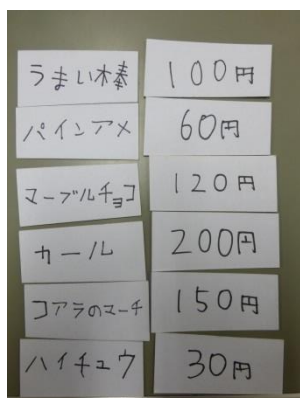 うまい棒 100円
パインアメ 60円
マーブルチョコ 120円
カール 200円
コアラのマーチ 150円
ハイチュウ 30円